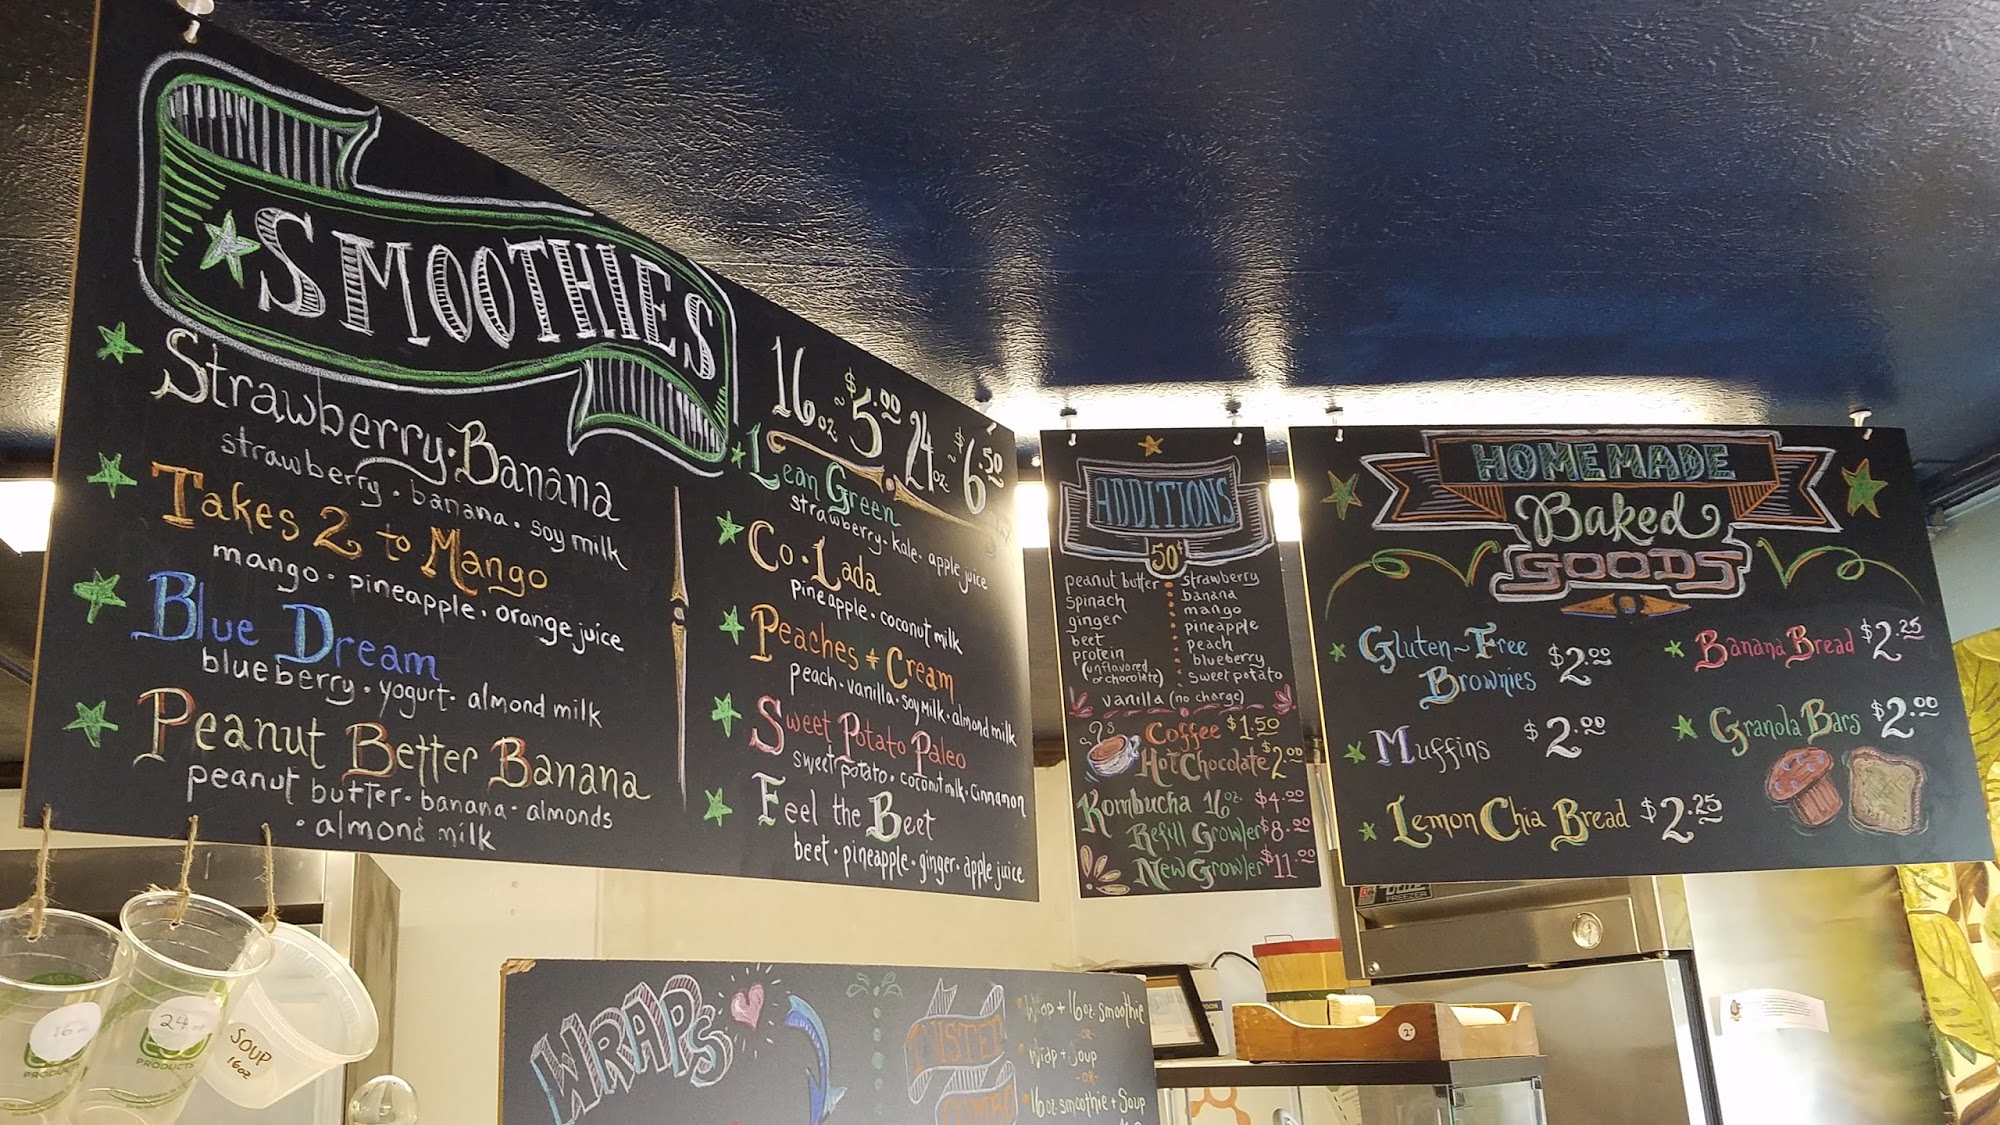 SMOOTHIES
16oz ~ $5.00 24oz ~ $6.50
Strawberry·Banana
strawberry · banana · soy milk
Takes 2 to Mango
mango · pineapple · orange juice
Blue Dream
blueberry · yogurt · almond milk
Peanut Better Banana
peanut butter · banana · almonds
· almond milk
Lean Green
strawberry · kale · apple juice
Co·Lada
pineapple · coconut milk
Peaches + Cream
peach · vanilla · soy milk · almond milk
Sweet Potato Paleo
sweet potato · coconut milk · cinnamon
Feel the Beet
beet · pineapple · ginger · apple juice
ADDITIONS
50¢
peanut butter
spinach
ginger
beet
protein
(unflavored
or chocolate)
strawberry
banana
mango
pineapple
peach
blueberry
sweet potato
vanilla (no charge)
Coffee $1.50
Hot Chocolate $2.00
Kombucha 16oz. $4.00
Refill Growler $8.00
New Growler $11.00
HOMEMADE
Baked
GOODS
Gluten-Free
Brownies $2.00
Muffins $2.00
Lemon Chia Bread $2.25
Banana Bread $2.25
Granola Bars $2.00
16oz
24oz
PRODUCTS
SOUP
16oz
WRAPS
TWISTED
COMBO
Wrap + 16oz smoothie
-OR-
Wrap + Soup
-OR-
16oz smoothie + Soup
FREEZER